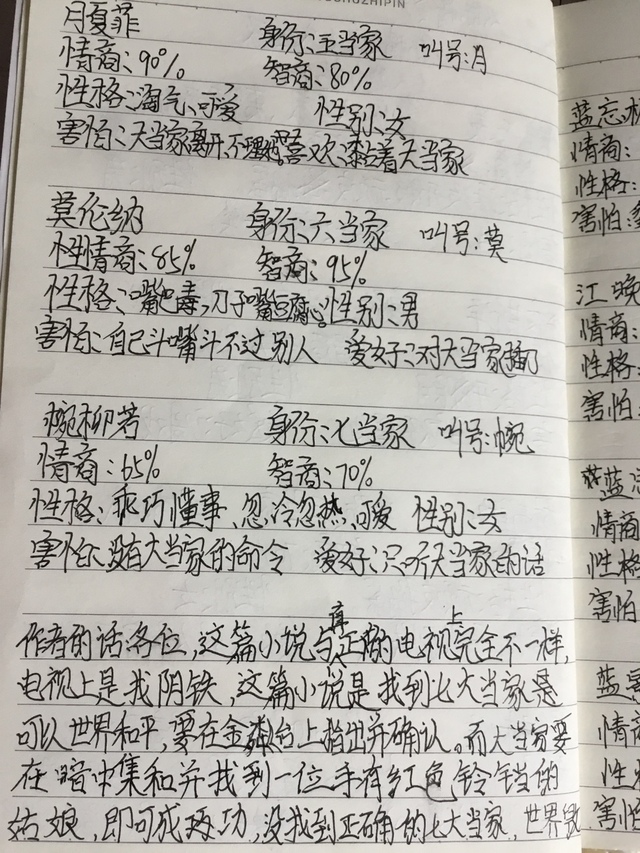 ZHIPIN
月夏菲 身份:五当家 叫号:月
情商:90% 智商:80%
性格:淘气、可爱 性别:女
害怕:大当家离开、不理她。喜欢:黏着大当家
莫伦纳 身份:六当家 叫号:莫
性情商:85% 智商:95%
性格:嘴巴毒,刀子嘴豆腐心。性别:男
害怕:自己斗嘴斗不过别人 爱好:对大当家
婉柳若 身份:七当家 叫号:婉
情商:65% 智商:70%
性格:乖巧懂事、忽冷忽热、可爱 性别:女
害怕:没有大当家的命令 爱好:只听大当家的话
作者的话:各位,这篇小说与真正的电视上完全不一样,
电视上是找阴铁,这篇小说是找到七大当家是
可以世界和平,要在金麟台上指出并确认。而大当家要
在暗中集和并找到一位手有红色铃铛的
姑娘,即可成功,没找到正确的七大当家,世界
蓝忘
情商:
性格:
害怕:
江晚
情商:
性格:
害怕:
蓝
情商
性格
害怕
蓝
情商
性
害怕